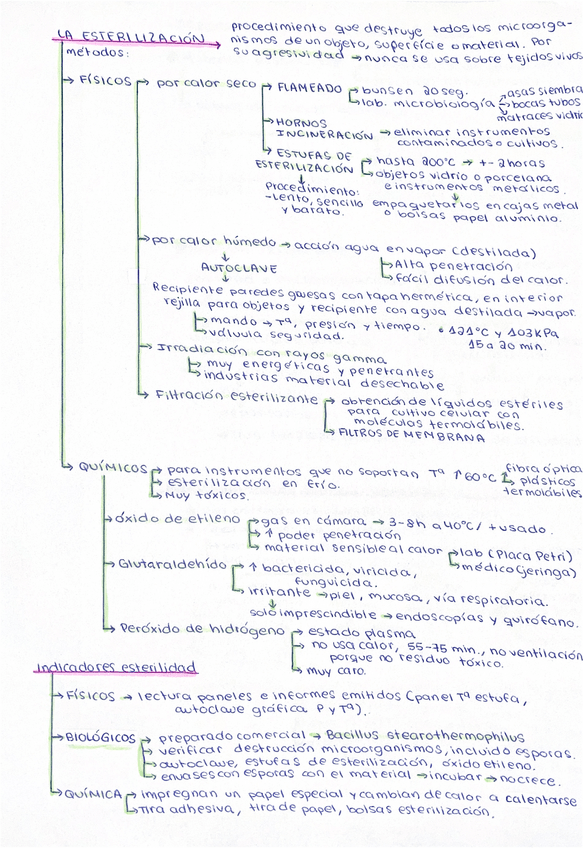 LA ESTERILIZACIÓN → procedimiento que destruye todos los microorga-
nismos de un objeto, superficie o material. Por
su agresividad → nunca se usa sobre tejidos vivos
métodos:
→ FÍSICOS → por calor seco → FLAMEADO → bunsen 20 seg.
→ lab. microbiología → asas siembra
→ bocas tubos
→ matraces vidrio
→ HORNOS
INCINERACIÓN → eliminar instrumentos
contaminados o cultivos.
→ ESTUFAS DE
ESTERILIZACIÓN → hasta 200ºC → +- 2 horas
→ objetos vidrio o porcelana
e instrumentos metálicos.
Procedimiento:
-Lento, sencillo
y barato.
empaquetarlos en cajas metal
o bolsas papel aluminio.
→ por calor húmedo → acción agua en vapor (destilada)
→ Alta penetración
→ fácil difusión del calor.
AUTOCLAVE
Recipiente paredes gruesas con tapa hermética, en interior
rejilla para objetos y recipiente con agua destilada → vapor.
→ mando → Tª, presión y tiempo.
→ válvula seguridad.
• 121ºC y 103KPa
15 a 20 min.
→ Irradiación con rayos gamma
→ muy energéticas y penetrantes
→ industrias material desechable
→ Filtración esterilizante → obtención de líquidos estériles
para cultivo celular con
moléculas termolábiles.
→ FILTROS DE MEMBRANA
→ QUÍMICOS → para instrumentos que no soportan Tª ↑ 60ºC → fibra óptica
→ plásticos
termolábiles
→ esterilización en frío.
→ Muy tóxicos.
→ óxido de etileno → gas en cámara → 3-8h a 40ºC / + usado.
→ ↑ poder penetración
→ material sensible al calor → lab (Placa Petri)
→ médico (jeringa)
→ Glutaraldehído → ↑ bactericida, viricida,
funguicida.
→ irritante → piel, mucosa, vía respiratoria.
solo imprescindible → endoscopías y quirófano.
→ Peróxido de hidrógeno → estado plasma
→ no usa calor, 55-75 min., no ventilación
porque no residuo tóxico.
→ muy caro.
Indicadores esterilidad
→ FÍSICOS → lectura paneles e informes emitidos (panel Tª estufa,
autoclave gráfica P y Tª).
→ BIOLÓGICOS → preparado comercial → Bacillus stearothermophilus
→ verificar destrucción microorganismos, incluido esporas.
→ autoclave, estufas de esterilización, óxido etileno.
→ envases con esporas con el material → incubar → no crece.
→ QUÍMICA → impregnan un papel especial y cambian de calor a calentarse
→ Tira adhesiva, tira de papel, bolsas esterilización.